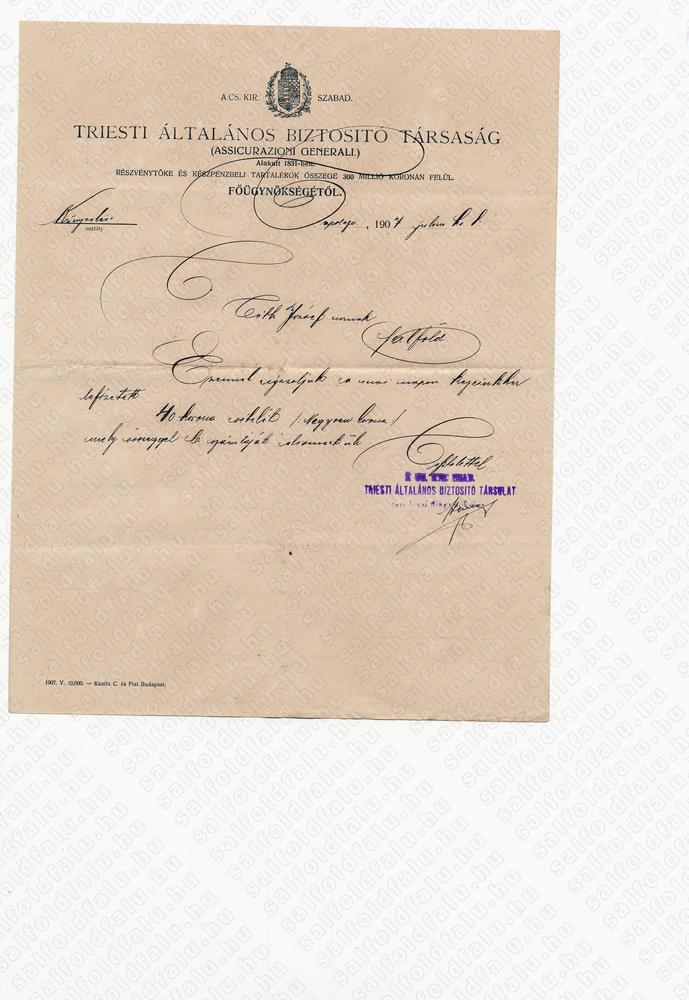 A CS. KIR. SZABAD.
TRIESTI ÁLTALÁNOS BIZTOSITÓ TÁRSASÁG
(ASSICURAZIONI GENERALI.)
Alakult 1831-ben.
RÉSZVÉNYTŐKE ÉS KÉSZPÉNZBELI TARTALÉKOK ÖSSZEGE 300 MILLIÓ KORONÁN FELÜL.
FŐÜGYNÖKSÉGÉTŐL.
osztály
, 1907 julius hó 1
Tóth József urnak
Salföld
Ezennel igazoljuk a mai napon kezeinkhez
lefizetett
40 korona /: Negyven korona /
mely összeggel számláját elismerjük
Tisztelettel
TRIESTI ÁLTALÁNOS BIZTOSITÓ TÁRSULAT
1907. V. 10,000. — Kanitz C. és Fiai Budapest.
salfoldfalu.hu